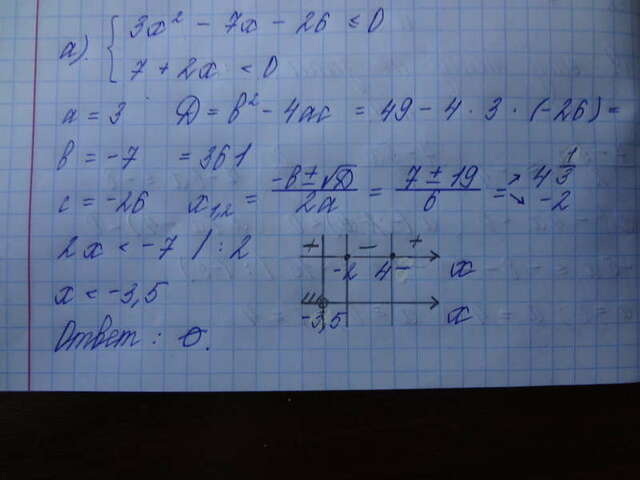 а). { 3x² - 7x - 26 ≤ 0
7 + 2x < 0
a = 3 D = b² - 4ac = 49 - 4 · 3 · (-26) =
b = -7 = 361
c = -26 x₁,₂ = (-b ± √D)/2a = (7 ± 19)/6 = ↗ 4 1/3 ↘ -2
2x < -7 / : 2
x < -3,5
+ - +
-2 4- x
-3,5 x
Ответ : ∅.